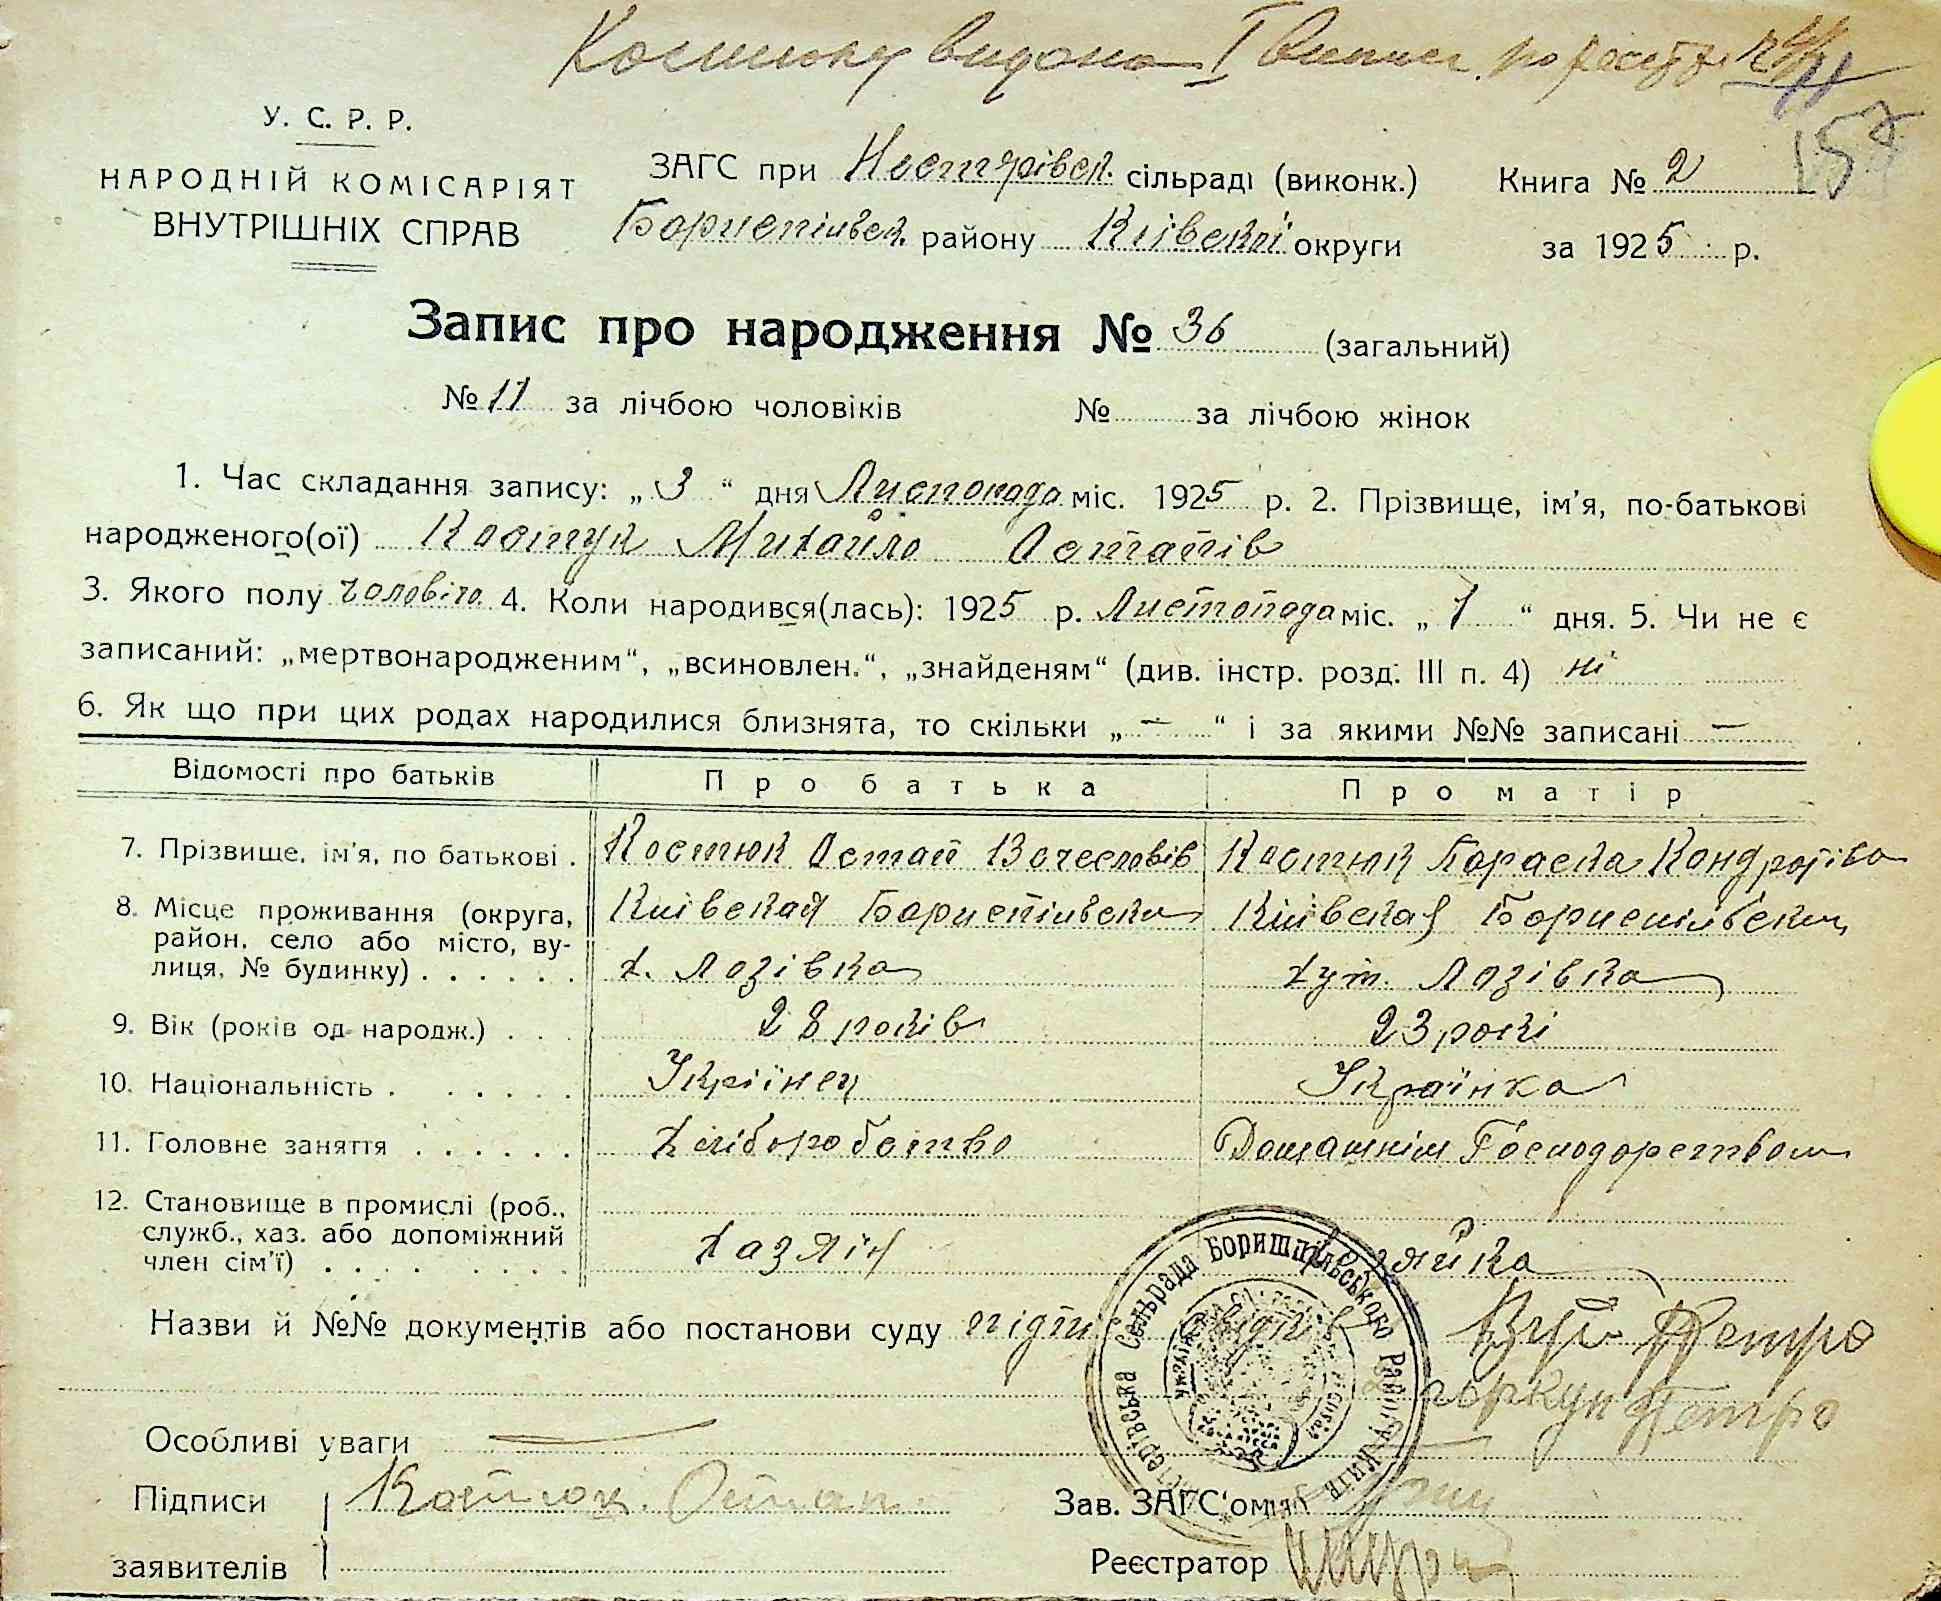 Костюку видана I Випис. по реєстру
У. С. Р. Р.
НАРОДНІЙ КОМІСАРІЯТ
ВНУТРІШНІХ СПРАВ
ЗАГС при сільраді (виконк.)
Бориспільск. району Київскої округи
Книга № 2
за 1925 р.
Запис про народження № 36 (загальний)
№ 11 за лічбою чоловіків № за лічбою жінок
1. Час складання запису: „ 3 “ дня Листопада міс. 1925 р. 2. Прізвище, ім'я, по-батькові
народженого(ої) Костук Михайло Остапів
3. Якого полу чоловічо. 4. Коли народився(лась): 1925 р. Листопада міс. „ 1 “ дня. 5. Чи не є
записаний: „мертвонародженим“, „всиновлен.“, „знайденям“ (див. інстр. розд. III п. 4) ні
6. Як що при цих родах народилися близнята, то скільки „ — “ і за якими №№ записані —
Відомості про батьків Про батька Про матір
7. Прізвище, ім'я, по батькові . Костюк Остап Вочесловів Костюк Параска Кондратіва
8. Місце проживання (округа, Київская Бориспільски Київская Бориспільски
район, село або місто, ву-
лиця, № будинку) . . . . . . х. Лозівка хут. Лозівка
9. Вік (років од народж.) . . . 28 років 23 рокі
10. Національність . . . . . . Укріїнец Україінка
11. Головне заняття . . . . . . Хліборобство Домашнім Господорством
12. Становище в промислі (роб.,
служб., хаз. або допоміжний
член сім'ї) . . . . . . . . . Хазяїн зяйка
Назви й №№ документів або постанови суду Петро
Петро
Особливі уваги —
Підписи Костюк Остап Зав. ЗАГС'ом
заявителів Реєстратор
Сільрада Бориспільського Району